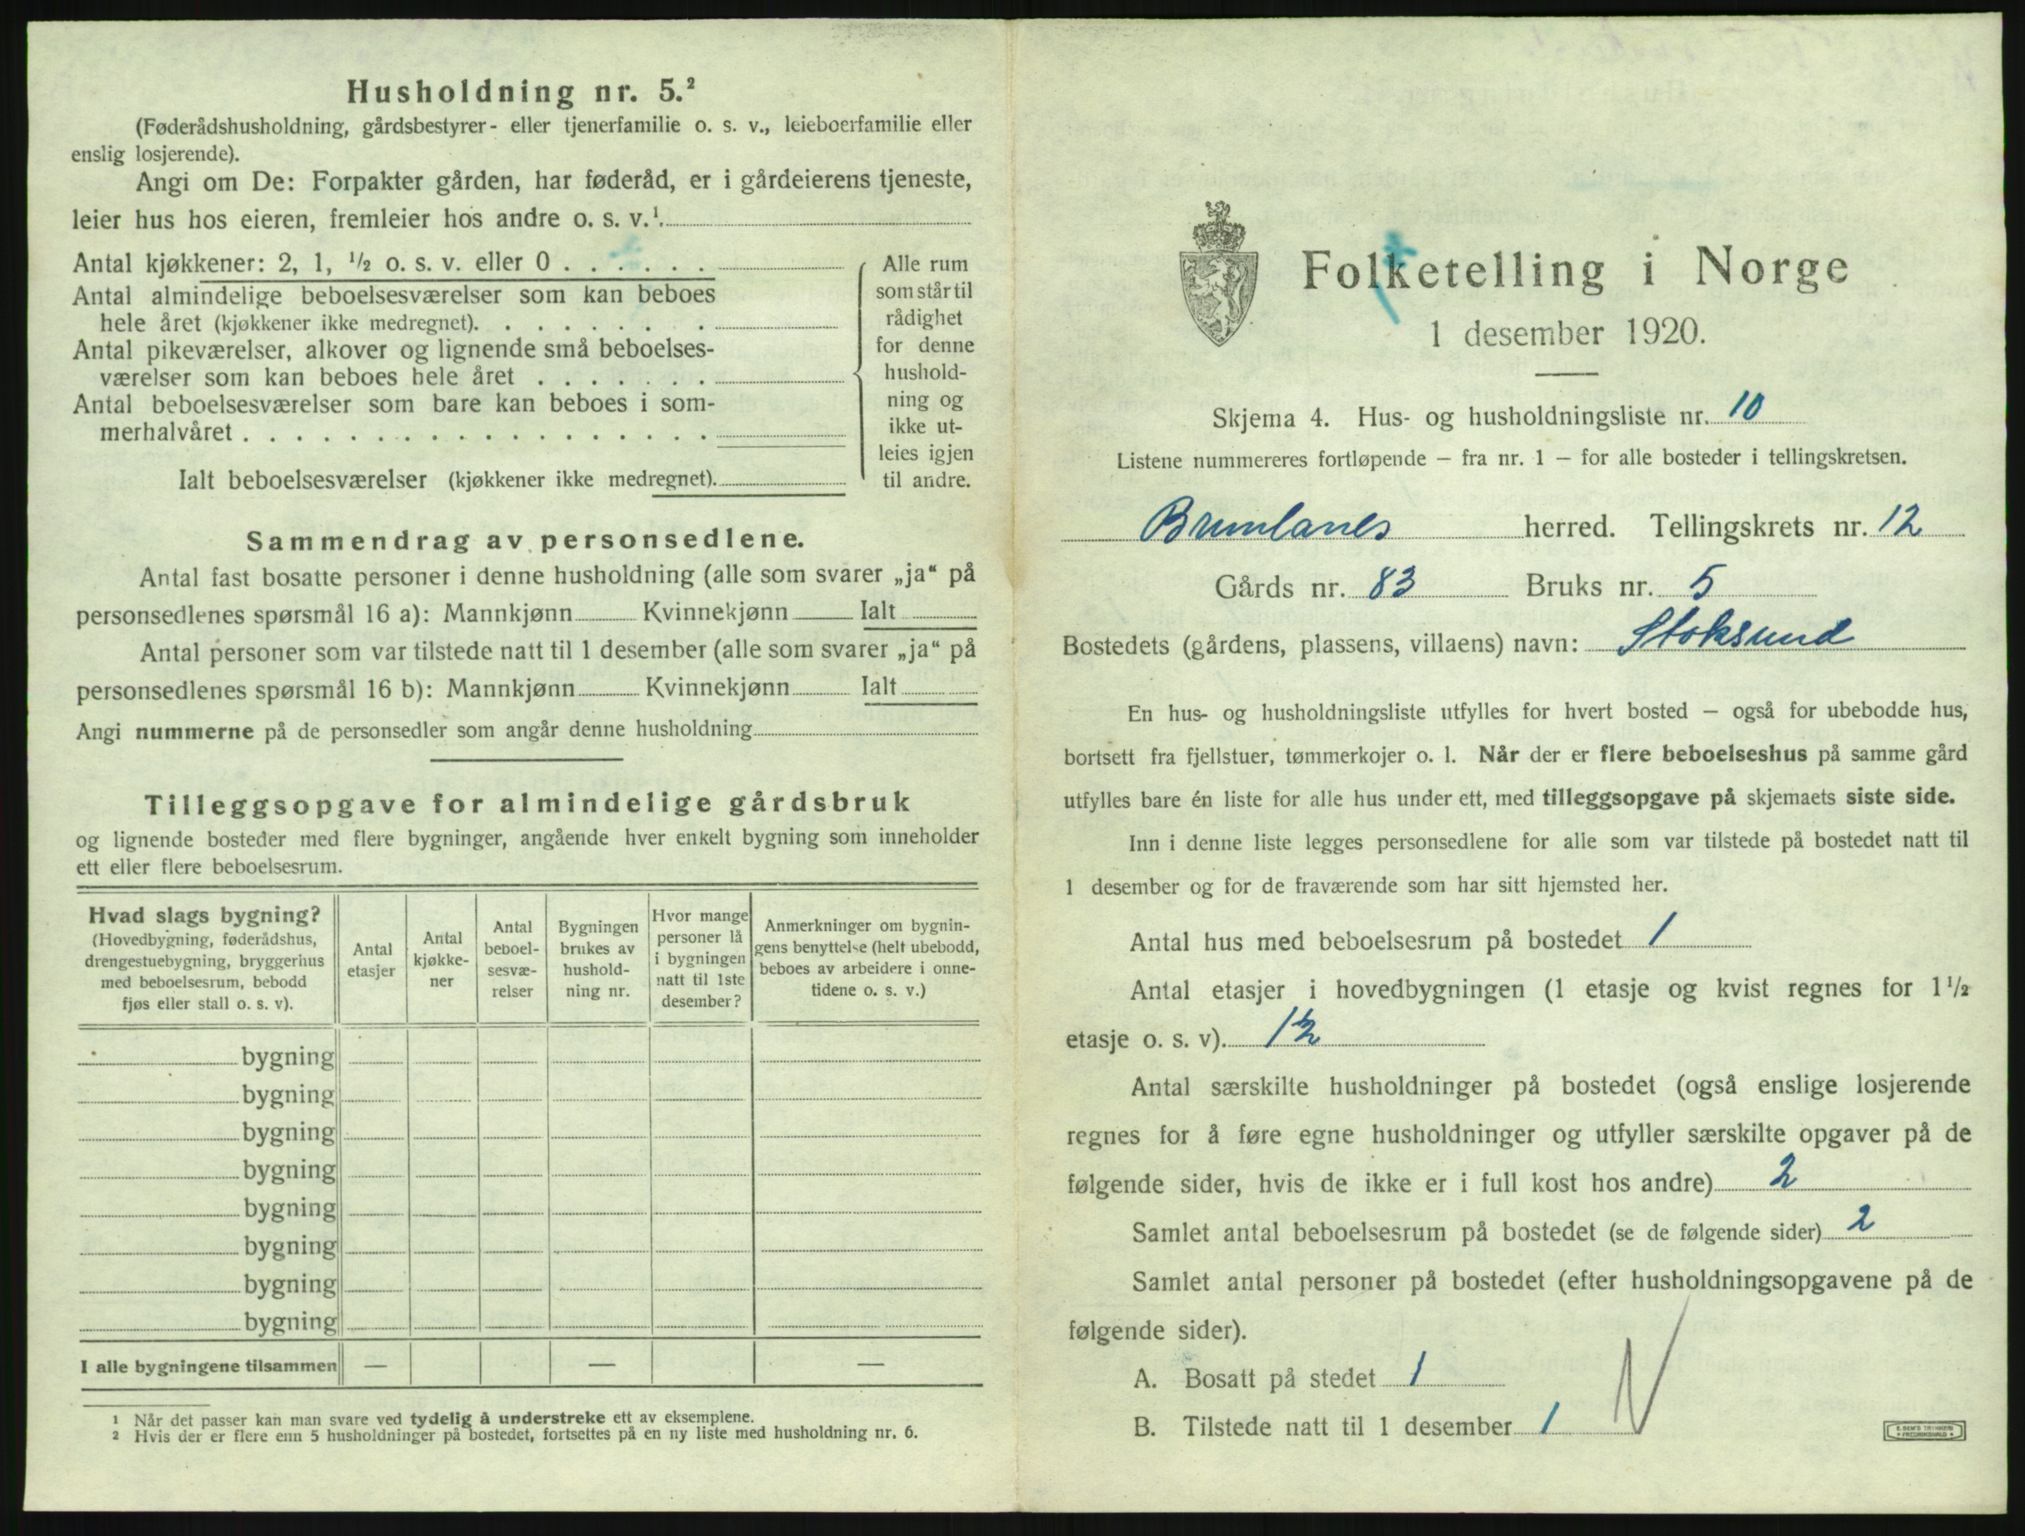 Husholdning nr. 5.²
(Føderådshusholdning, gårdsbestyrer- eller tjenerfamilie o. s. v., leieboerfamilie eller
enslig losjerende).
Angi om De: Forpakter gården, har føderåd, er i gårdeierens tjeneste,
leier hus hos eieren, fremleier hos andre o. s. v.¹.
Antal kjøkkener: 2, 1, ½ o. s. v. eller 0 . . . . . .
Antal almindelige beboelsesværelser som kan beboes
hele året (kjøkkener ikke medregnet). . . . . . . .
Antal pikeværelser, alkover og lignende små beboelses-
værelser som kan beboes hele året . . . . . . .
Antal beboelsesværelser som bare kan beboes i som-
merhalvåret . . . . . . . . . . . . . . . . . .
Ialt beboelsesværelser (kjøkkener ikke medregnet).
Alle rum
som står til
rådighet
for denne
hushold-
ning og
ikke ut-
leies igjen
til andre.
Sammendrag av personsedlene.
Antal fast bosatte personer i denne husholdning (alle som svarer „ja“ på
personsedlenes spørsmål 16 a): Mannkjønn Kvinnekjønn Ialt
Antal personer som var tilstede natt til 1 desember (alle som svarer „ja“ på
personsedlenes spørsmål 16 b): Mannkjønn Kvinnekjønn Ialt
Angi nummerne på de personsedler som angår denne husholdning
Tilleggsopgave for almindelige gårdsbruk
og lignende bosteder med flere bygninger, angående hver enkelt bygning som inneholder
ett eller flere beboelsesrum.
Hvad slags bygning?
(Hovedbygning, føderådshus,
drengestuebygning, bryggerhus
med beboelsesrum, bebodd
fjøs eller stall o. s. v).
Antal
etasjer
Antal
kjøkke-
ner
Antal
beboel-
sesvæ-
relser
Bygningen
brukes av
hushold-
ning nr.
Hvor mange
personer lå
i bygningen
natt til 1ste
desember?
Anmerkninger om bygnin-
gens benyttelse (helt ubebodd,
beboes av arbeidere i onne-
tidene o. s. v.)
bygning
bygning
bygning
bygning
bygning
bygning
bygning
bygning
I alle bygningene tilsammen — — —
¹ Når det passer kan man svare ved tydelig å understreke ett av eksemplene.
² Hvis der er flere enn 5 husholdninger på bostedet, fortsettes på en ny liste med husholdning nr. 6.
Folketelling i Norge
1 desember 1920.
Skjema 4. Hus- og husholdningsliste nr. 10
Listene nummereres fortløpende – fra nr. 1 – for alle bosteder i tellingskretsen.
Brunlanes herred. Tellingskrets nr. 12
Gårds nr. 83 Bruks nr. 5
Bostedets (gårdens, plassens, villaens) navn: Stoksund
En hus- og husholdningsliste utfylles for hvert bosted – også for ubebodde hus,
bortsett fra fjellstuer, tømmerkojer o. l. Når der er flere beboelseshus på samme gård
utfylles bare én liste for alle hus under ett, med tilleggsopgave på skjemaets siste side.
Inn i denne liste legges personsedlene for alle som var tilstede på bostedet natt til
1 desember og for de fraværende som har sitt hjemsted her.
Antal hus med beboelsesrum på bostedet 1
Antal etasjer i hovedbygningen (1 etasje og kvist regnes for 1½
etasje o. s. v). 1½
Antal særskilte husholdninger på bostedet (også enslige losjerende
regnes for å føre egne husholdninger og utfyller særskilte opgaver på de
følgende sider, hvis de ikke er i full kost hos andre) 2
Samlet antal beboelsesrum på bostedet (se de følgende sider) 2
Samlet antal personer på bostedet (efter husholdningsopgavene på de
følgende sider).
A. Bosatt på stedet 1
B. Tilstede natt til 1 desember 1
N